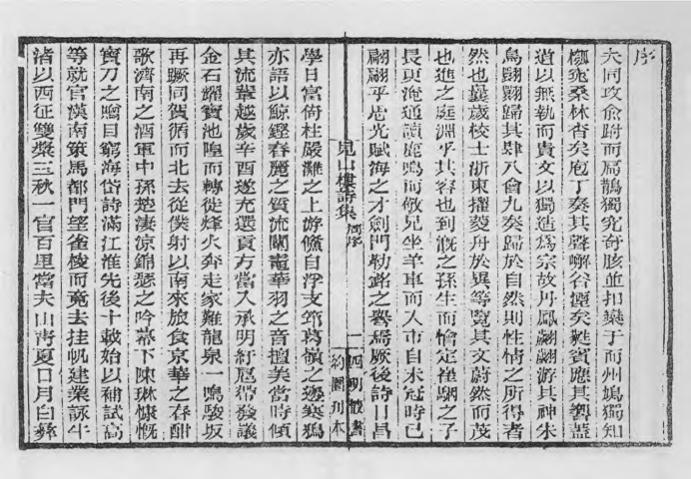 序
夫同攻俞跗而扁鵲獨究奇胲並扣樂于而州鳩獨知
桑林杳矣庖丁奏其聲嶰谷
道以無執而貴文以獨造爲宗故丹鳳翽翽游其神朱
鳥翩翩歸其肆八會九奏歸於自然則性情之所得者
然也曩歲校士浙東擢菱舟於異等覽其文蔚然而茂
也進之庭淵乎其容也到溉之孫生而愔定崔駰之子
長更淹通讀鹿鳴而敬兄坐羊車而入市自未冠時已
翩翩乎思光賦海之才劍門勒銘之譽焉厥後詩日昌
見山樓詩集 序 一 四明叢書 約園刊本
學日富倚柱嚴灘之上游儵自浮支筇葛嶺之邊寒鴉
亦語以鯨鏗春麗之質流闐電華羽之音擅美當時傾
其流輩越歲辛酉遂充選貢方當入承明紆扈帶發議
金石耀寶池隍而轉徙烽火奔走家難龍泉一鳴駿坂
再蹶同賀循而北去從僕射以南來旅食京華之春酣
歌濟南之酒軍中孫楚淒涼錦瑟之吟幕下陳琳慷慨
寶刀之贈目窮海岱詩滿江淮先後十載始以補試高
等就官漢南策馬都門望雀梭而竟去挂帆建業詠牛
渚以西征雙槳三秋一官百里當夫山靑夏口月白彝